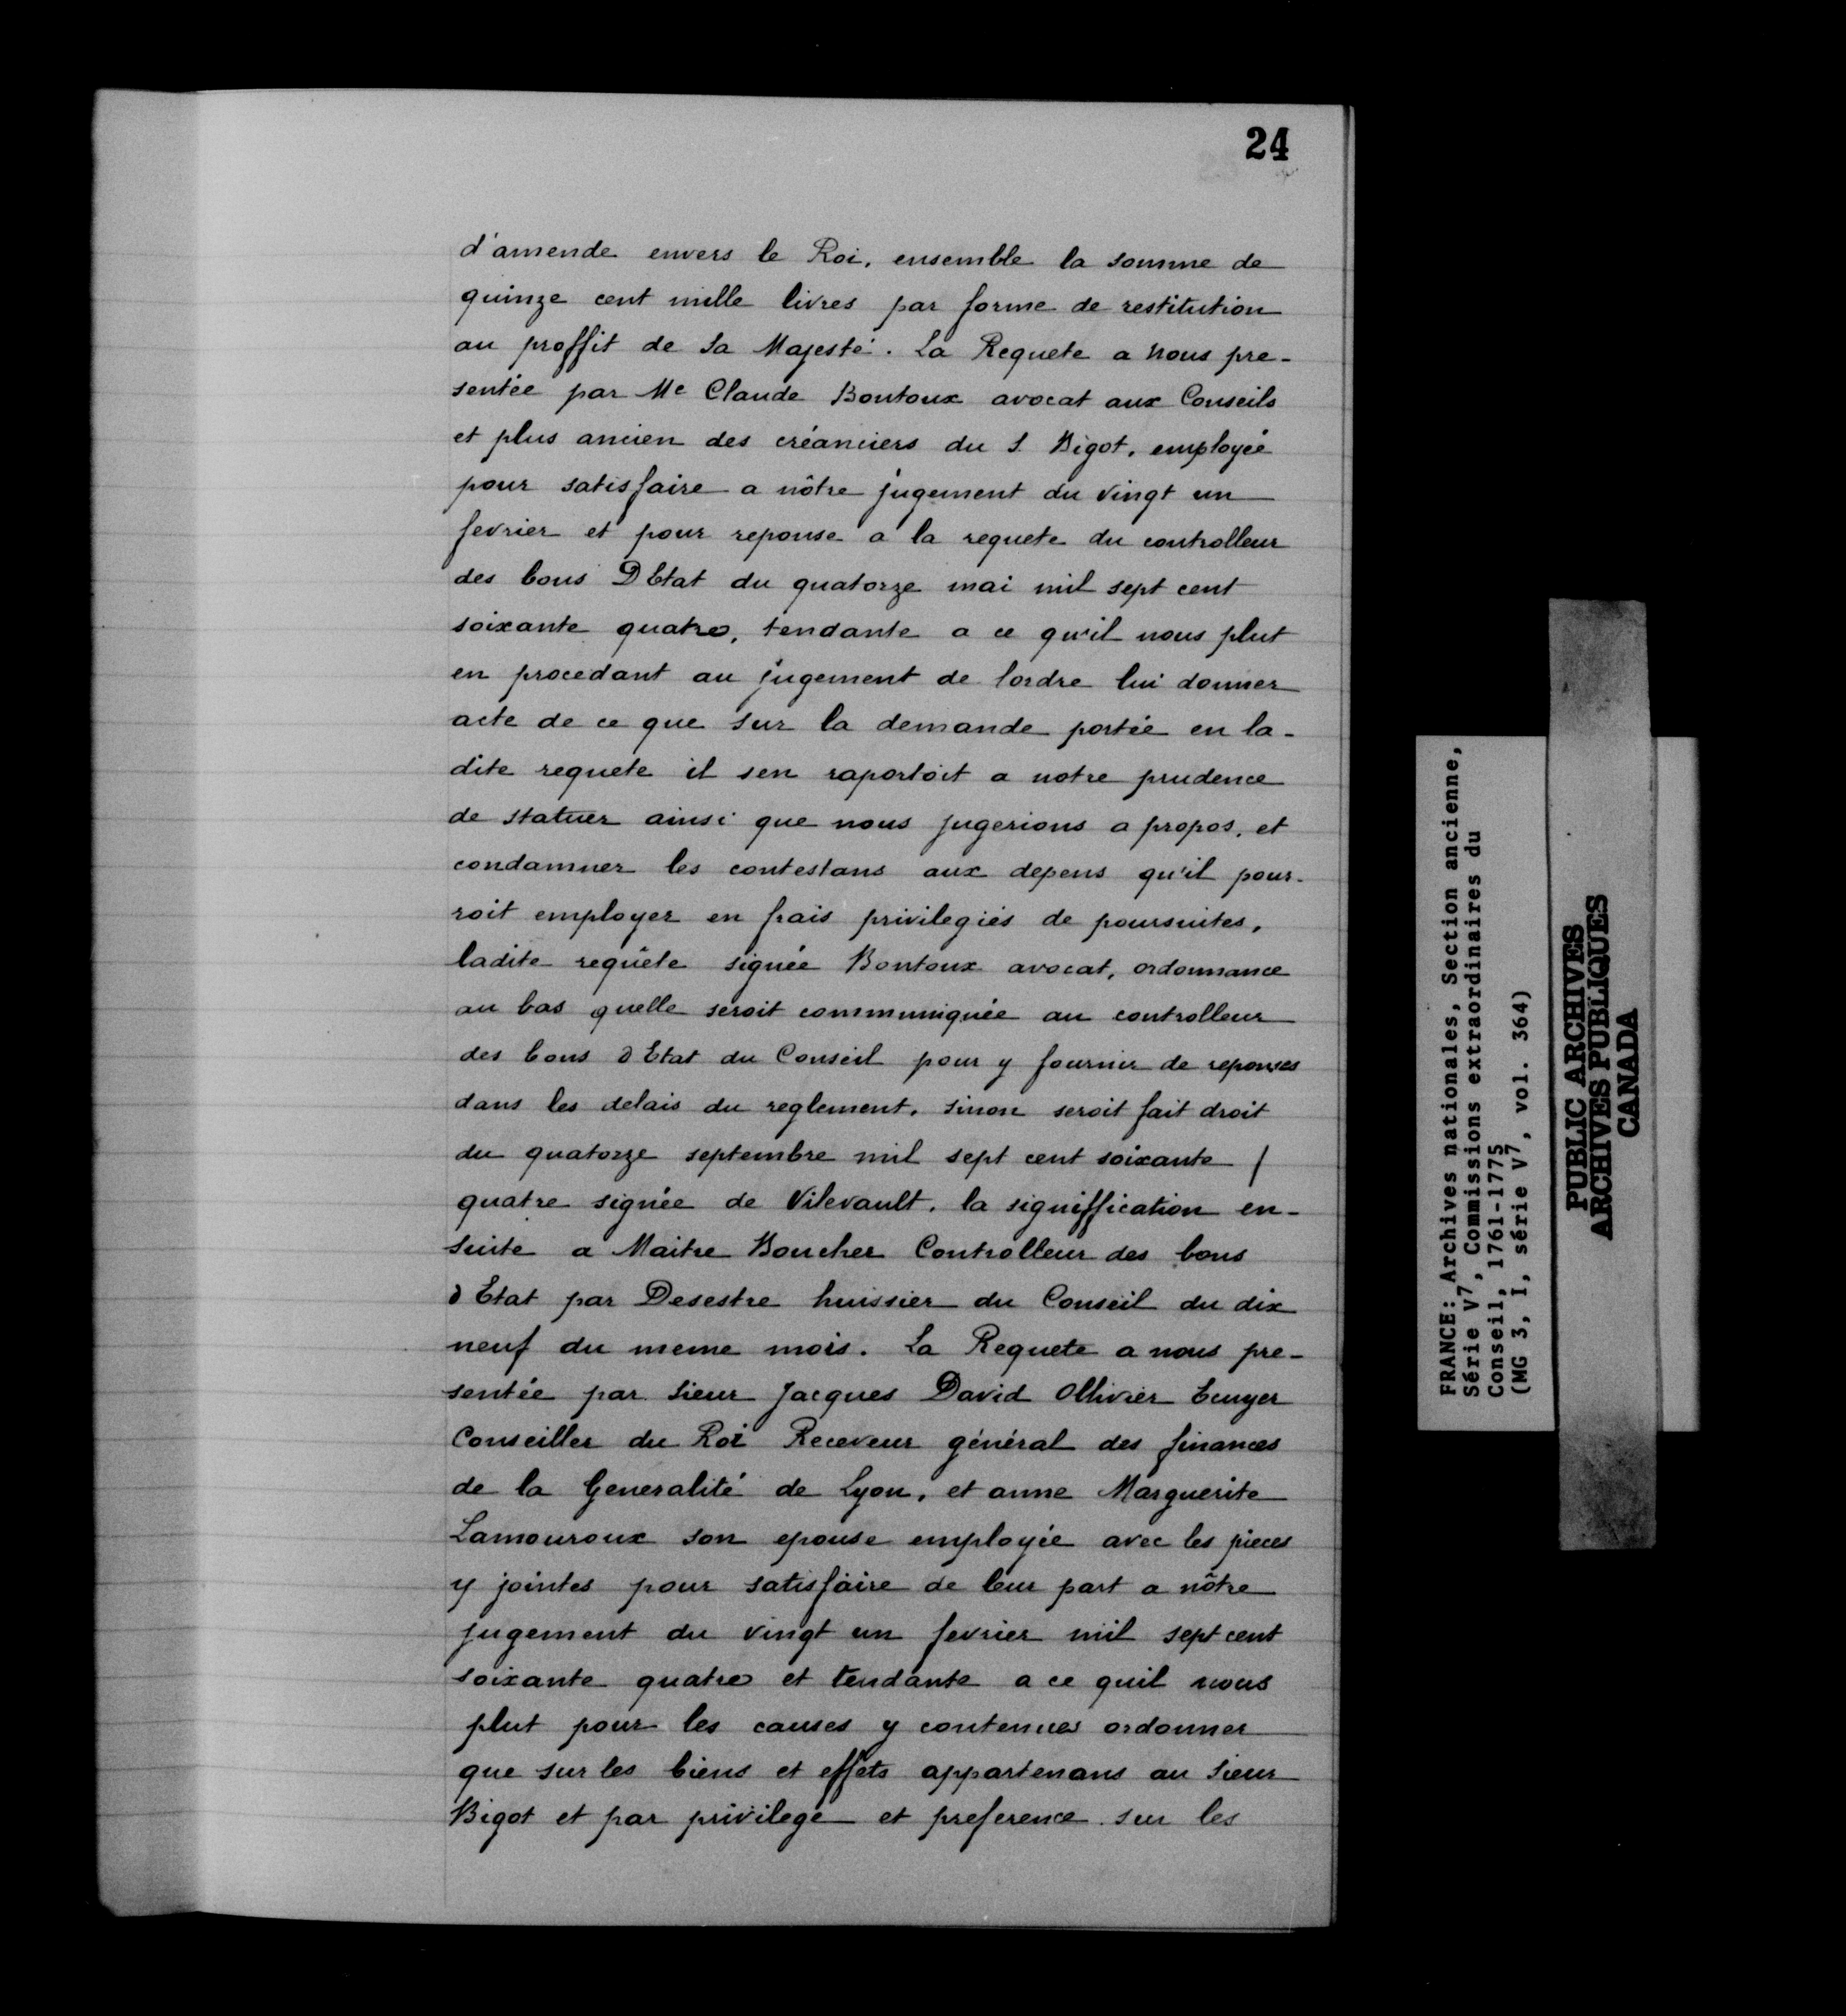 24
d'amende envers le Roi, ensemble la somme de
quinze cent mille livres par forme de restitution
au proffit de Sa Majesté. La Requete a nous pre-
sentée par Me Claude Bontoux avocat aux Conseils
et plus ancien des créanciers du S Bigot, employée
pour satisfaire a nôtre jugement du vingt un
fevrier et pour reponse a la requete du controlleur
des bons D Etat du quatorze mai mil sept cent
soixante quatre, tendante a ce qu'il nous plut
en procedant au jugement de lordre lui donner
acte de ce que sur la demande portée en la-
dite requete il sen raportoit a notre prudence
de statuer ainsi que nous jugerions a propos, et
condamner les contestans aux depens qu'il pour-
roit employer en frais privilegiés de poursuites,
ladite requête signée Bontoux avocat, ordonnance
au bas quelle seroit communiquée au controlleur
des bons d Etat du Conseil pour y fournir de reponses
dans les delais du reglement, sinon seroit fait droit
du quatorze septembre mil sept cent soixante /
quatre signée de Vilevault, la signiffication en-
suite a Maitre Boucher Controlleur des bons
d Etat par Desestre huissier du Conseil du dix
neuf du meme mois. La Requete a nous pre-
sentée par Sieur Jacques David Ollivier Ecuyer
Conseiller du Roi Receveur général des finances
de la Generalité de Lyon, et anne Marguerite
Lamouroux son epouse employée avec les pieces
y jointes pour satisfaire de leur part a nôtre
jugement du vingt un fevrier mil sept cent
soixante quatre et tendante a ce quil nous
plut pour les causes y contenues ordonner
que sur les biens et effets appartenans au Sieur
Bigot et par privilege et preference sur les
FRANCE: Archives nationales, Section ancienne,
Série V7, Commissions extraordinaires du
Conseil, 1761-1775
(MG 3, I, série V7, vol. 364)
PUBLIC ARCHIVES
ARCHIVES PUBLIQUES
CANADA